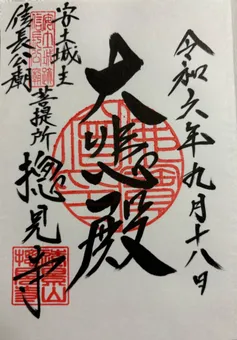 令和六年九月十八日
大悲殿
安土城主
信長公廟
菩提所
摠見寺